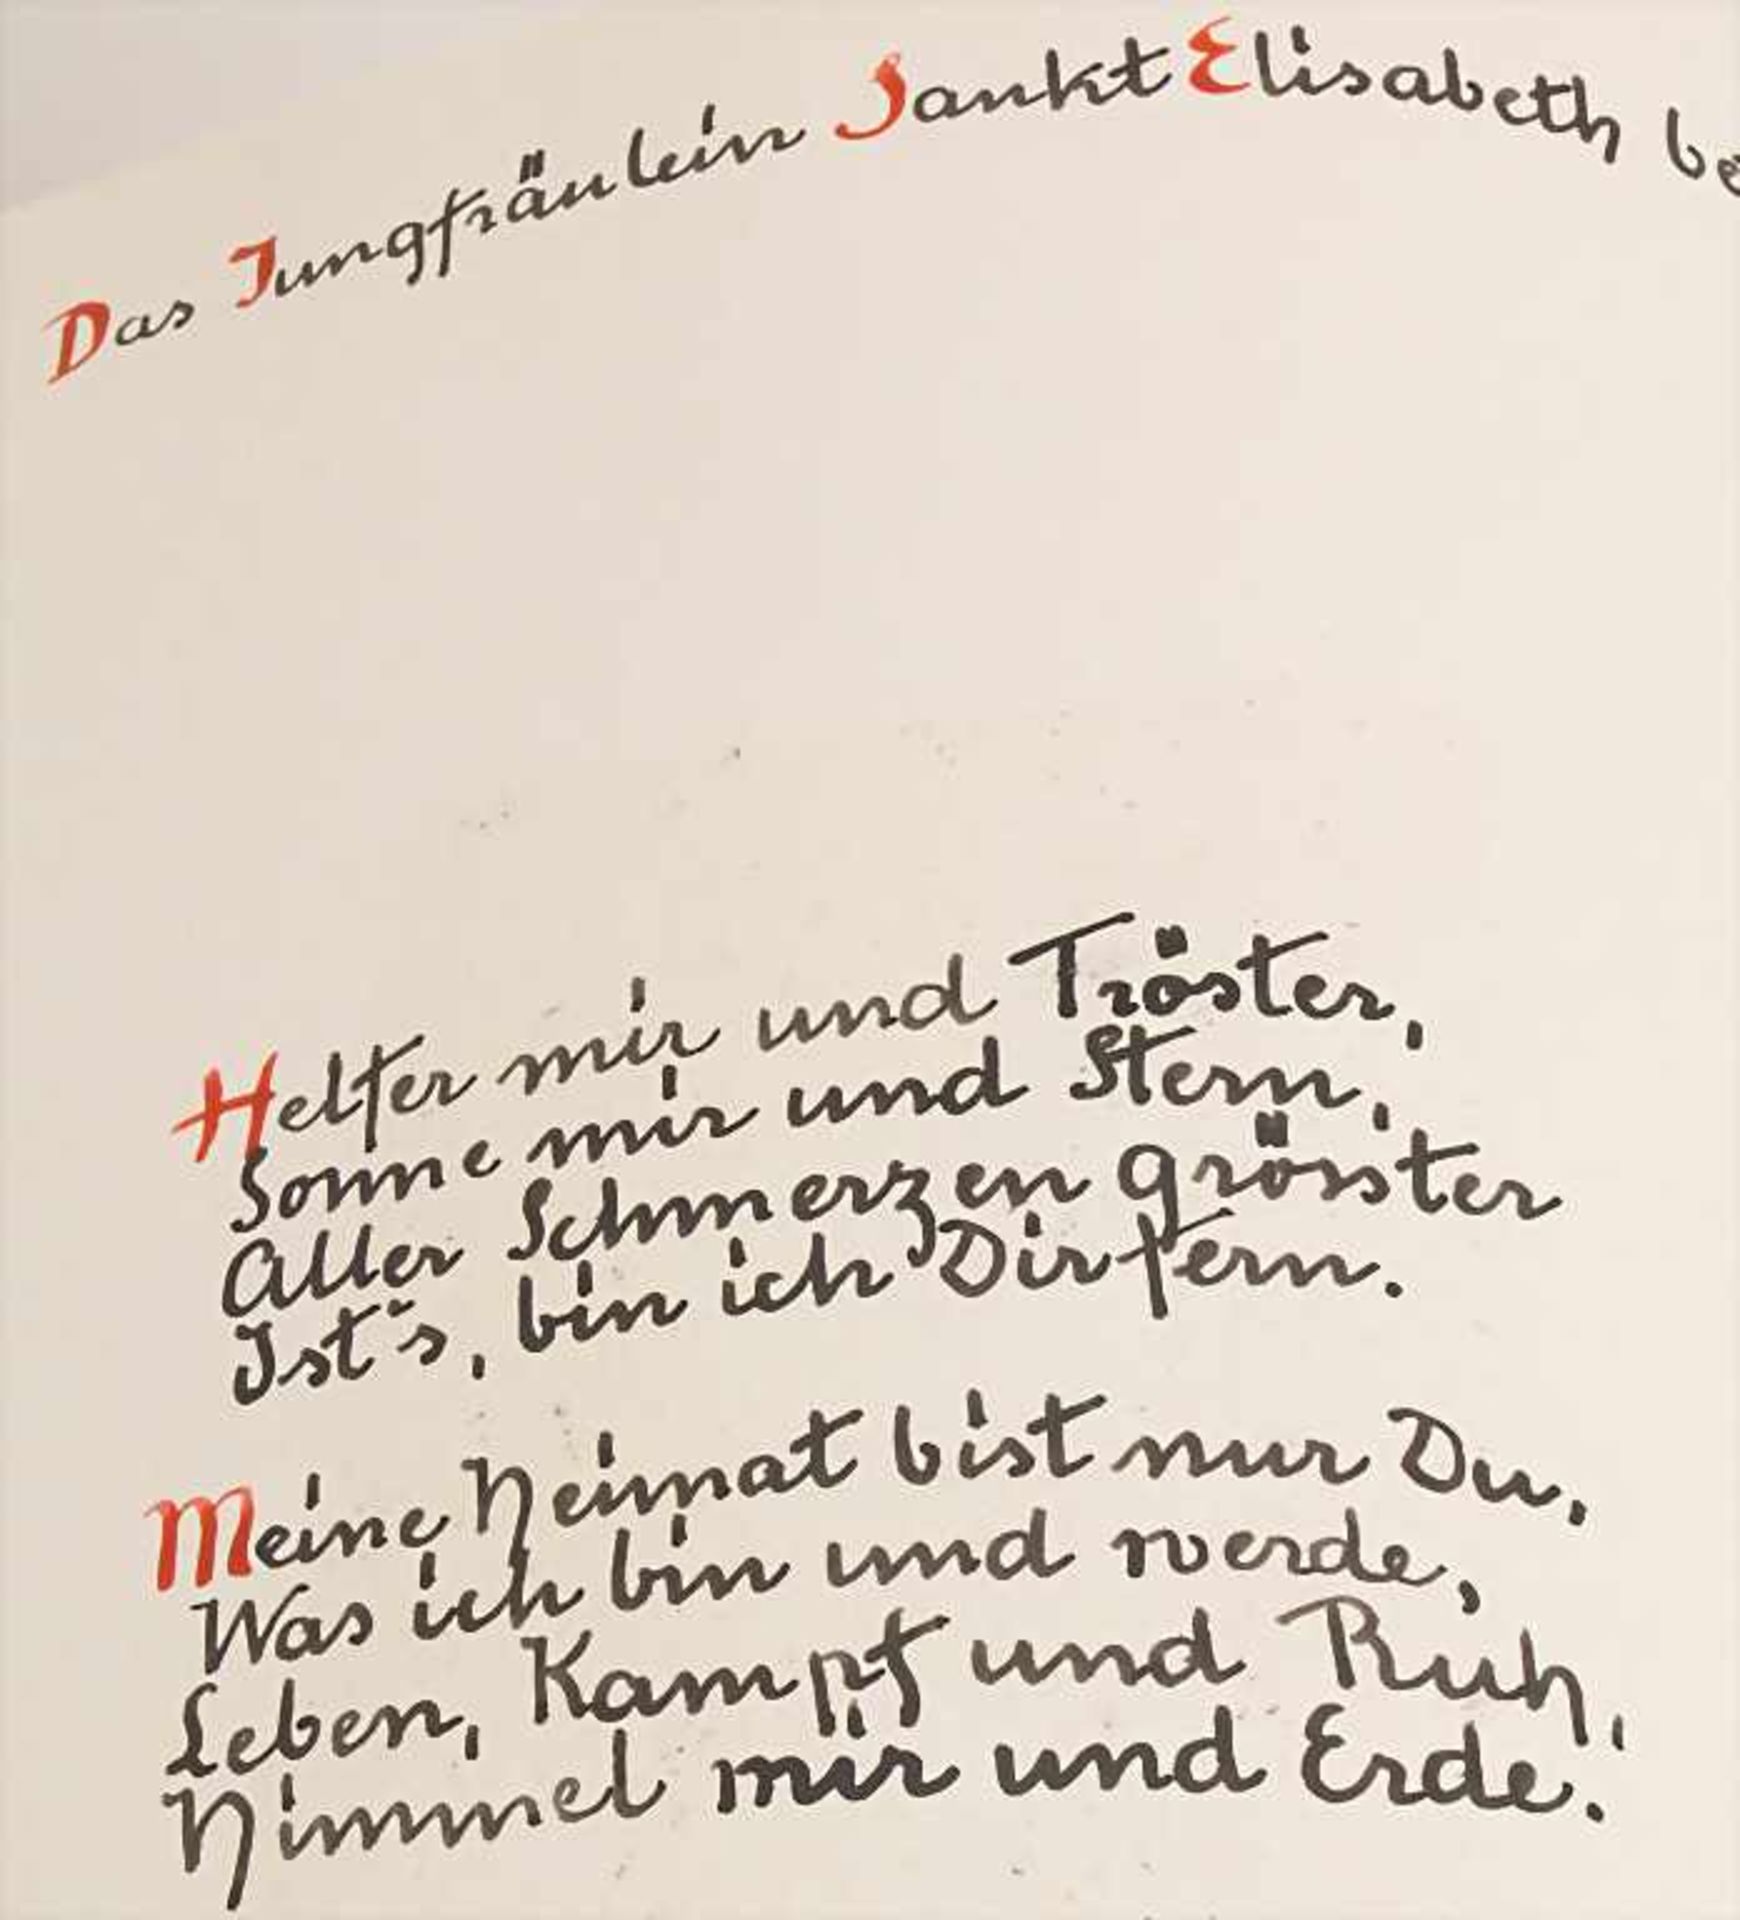 Das Jungfräulein Sankt Elisabeth be
Helfer mir und Tröster,
Sonne mir und Stern,
Aller Schmerzen grösster
Ist's, bin ich Dir fern.
Meine Heimat bist nur Du,
Was ich bin und werde,
Leben, Kampf und Ruh,
Himmel mir und Erde.